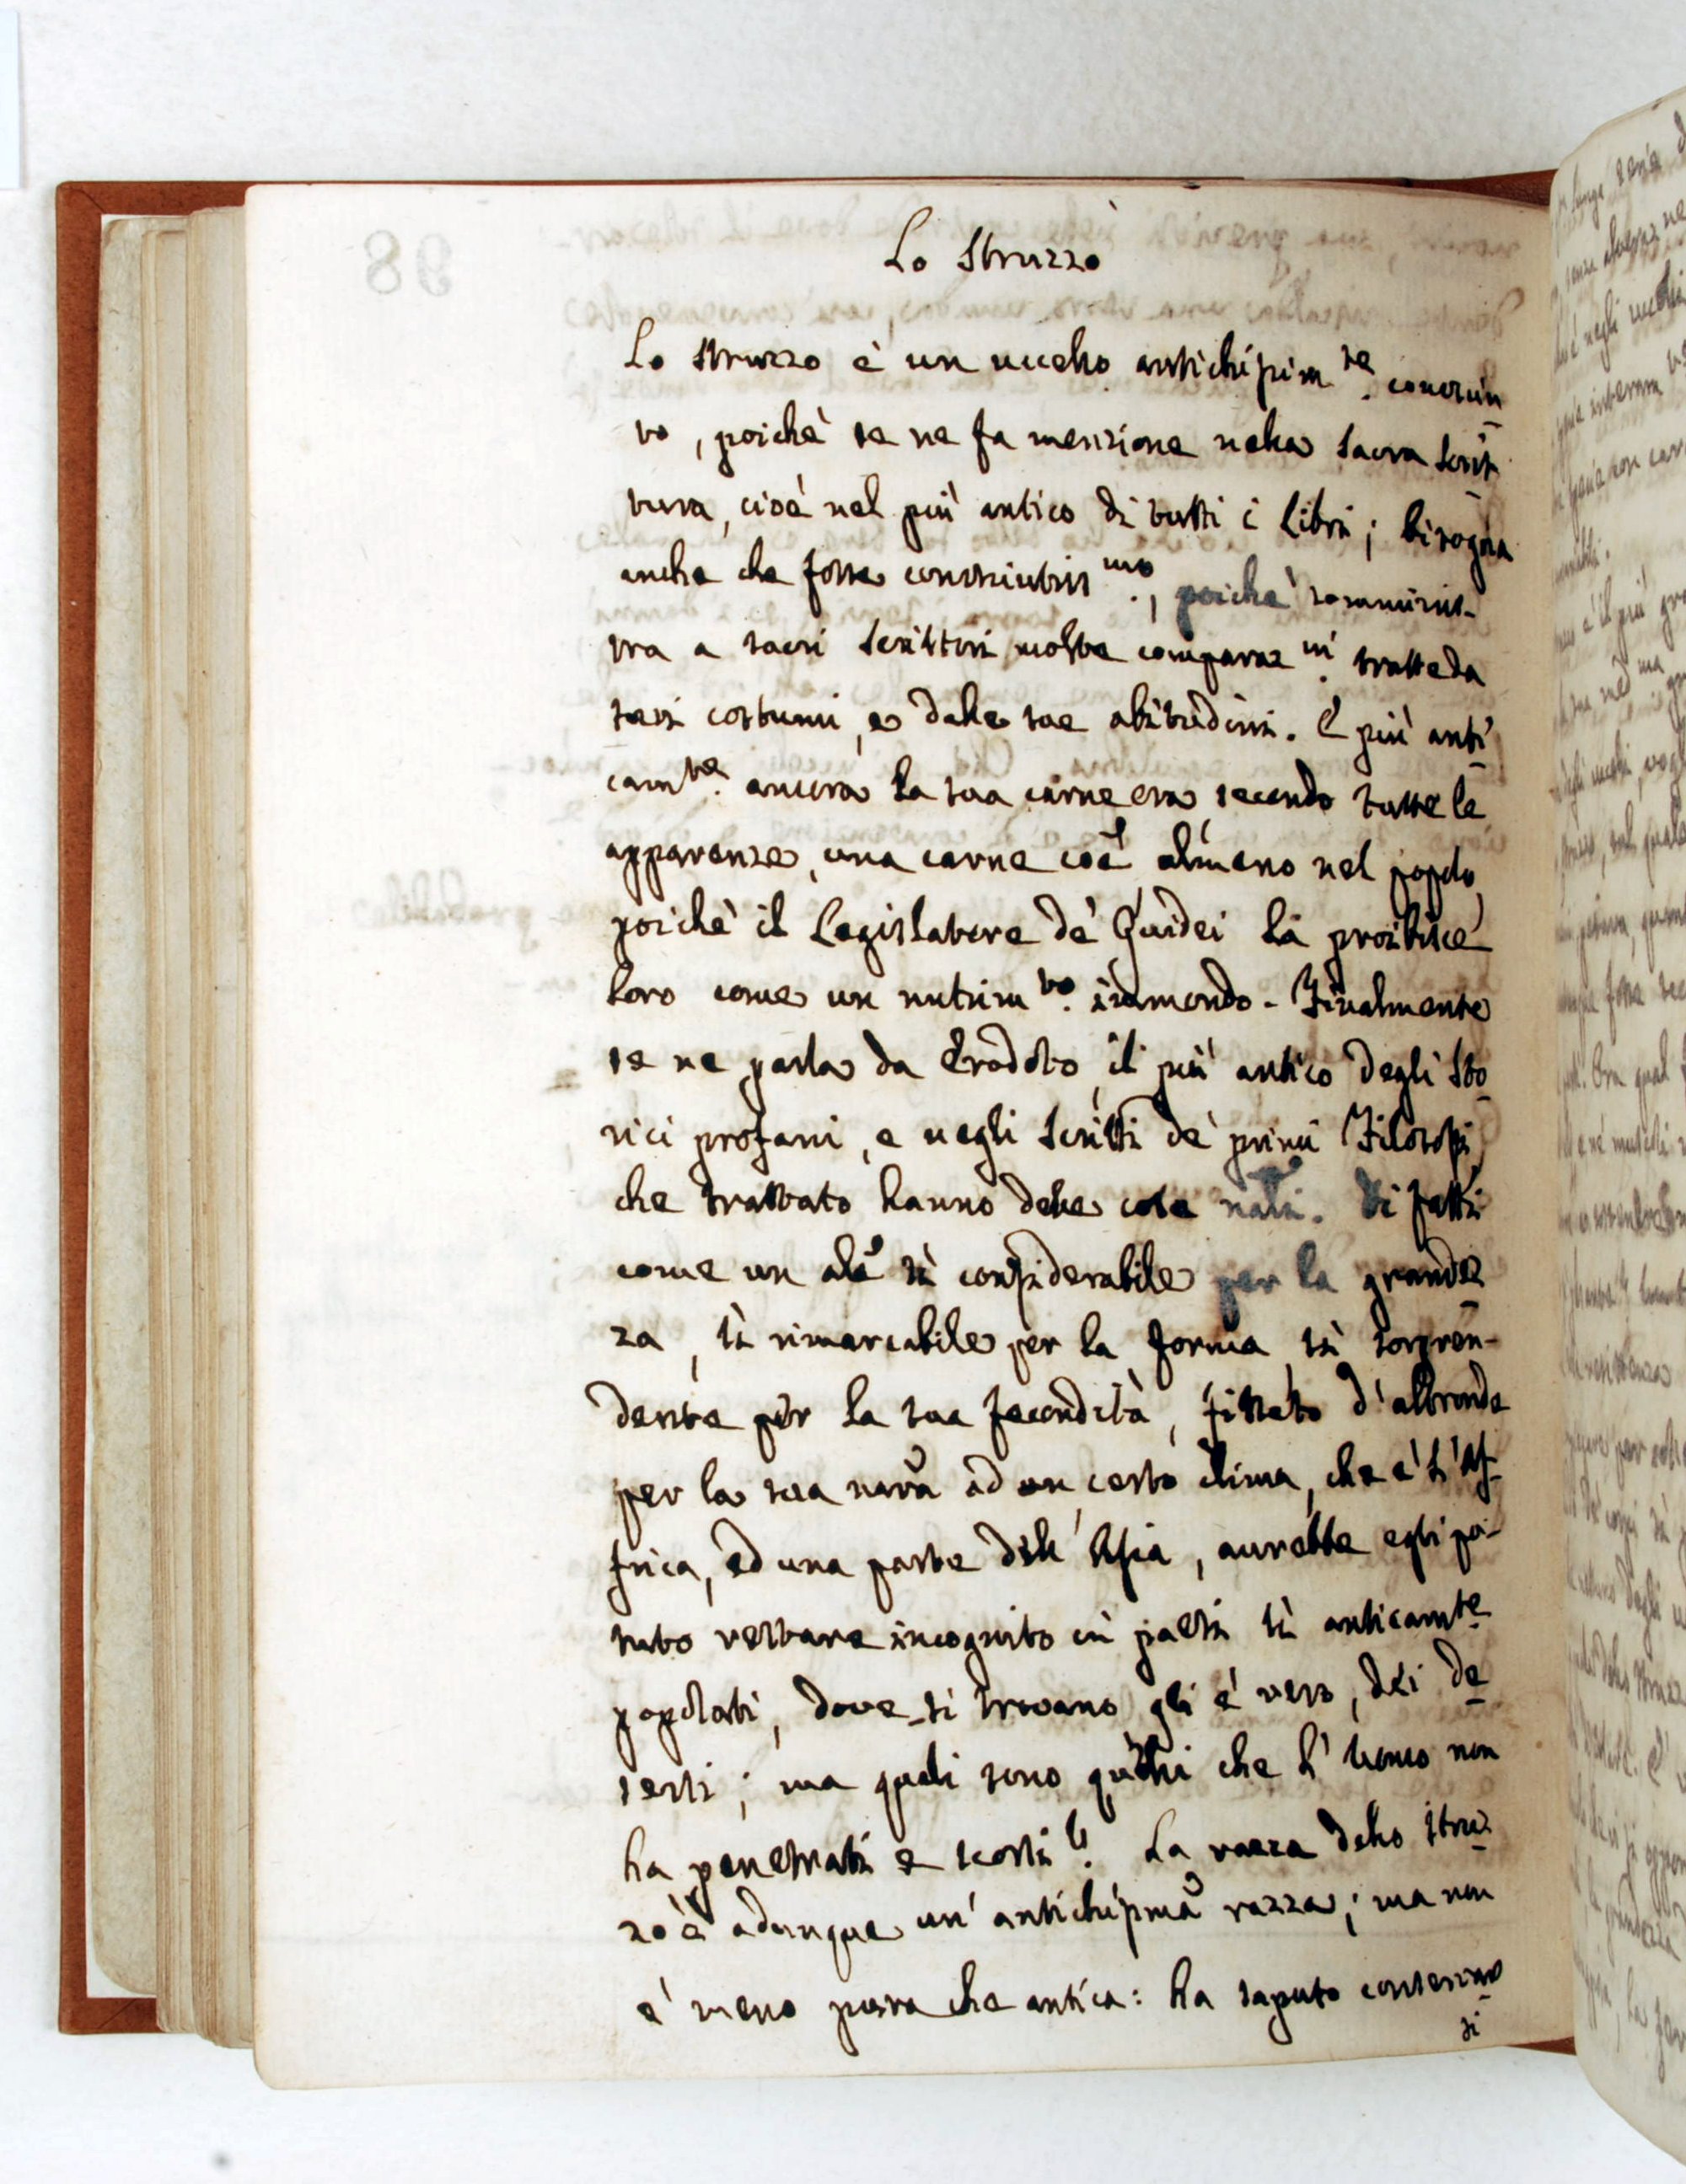 Lo Struzzo
Lo struzzo è un uccello antichissim.te conosciu
to, poichè se ne fa menzione nella Sacra Scrit
tura, cioè nel più antico di tutti i Libri; bisogna
anche che fosse conosciutiss.mo, poichè somminis-
tra a sacri Scrittori molte comparaz.ni tratte da
suoi costumi, e dalle sue abitudini. E più anti
cam.te ancora la sua carne era, secondo tutte le
apparenze, una carne coê almeno nel popolo,
poichè il Legislatore de' Giudei la proibisce
loro come un nutrim.to immondo - Finalmente
se ne parla da Erodoto il più antico degli Sto
rici profani, e negli Scritti de' primi Filosofi,
che trattato hanno delle cose nãli. Di fatti
come un ãle sì considerabile per la grandez
za, sì rimarcabile per la forma, sì sorpren-
dente per la sua fecondità, fissato d'altronde
per la sua nãra ad un certo clima, che è l'Af-
frica, ed una parte dell'Asia, avrebbe egli po-
tuto restare incognito in paesi sì anticam.te
popolati, dove si trovano gli è vero, dei de
serti; ma quali sono quelli che l'Uomo non
ha penetrati e scorsi? La razza dello Struz
zo è adunque un' antichissima razza; ma non
è meno pura che antica: ha saputo conservar
si